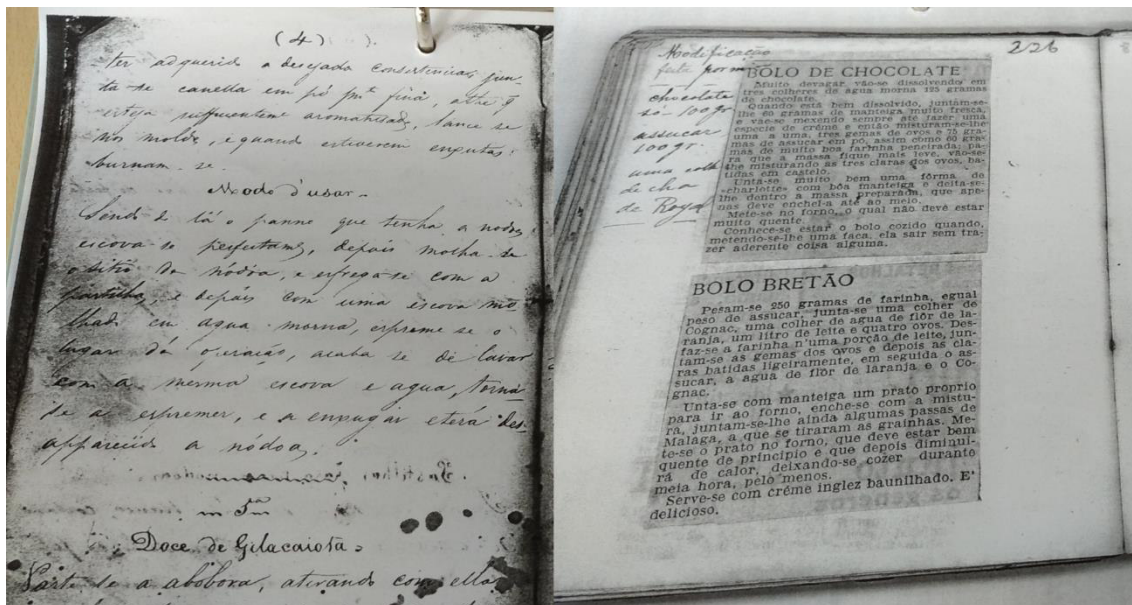 (4)
ter adquerido a desejada consistencia, jun
ta-se canella em pó m.to fina, athe q
esteja sufficientem.e aromatisado, lance se
nos moldes, e quando estiverem enxutas
burnam se.
Modo d'usar.
Sendo de lã o panno que tenha a nodoa,
escova-se perfeitam.e, depois molha-se
o sitio da nódoa, e esfrega-se com a
pastilha, e depois com uma escova mo
lhada em agua morna, espreme se o
lugar da operação, acaba se de lavar
com a mesma escova e agua, torna
se a espremer, e a enxugar e terá des
apparecido a nódoa.
Doce de Gilacaiota.
Parte se a abobora, atirando com ella
226
Modificação
feita por mim
chocolate
só - 100 gr
assucar
100 gr.
uma colh.
de cha
de Royal
BOLO DE CHOCOLATE
Muito devagar, vão-se dissolvendo em
tres colheres de agua morna 125 gramas
de chocolate.
Quando está bem dissolvido, juntam-se-
lhe 60 gramas de manteiga muito fresca,
e vae-se mexendo sempre até fazer uma
especie de crême e então misturam-se-lhe
uma a uma, tres gemas de ovos e 75 gra-
mas de assucar em pó, assim como 60 gra-
mas de muito boa farinha peneirada; pa-
ra que a massa fique mais leve, vão-se-
lhe misturando as tres claras dos ovos, ba-
tidas em castelo.
Unta-se muito bem uma fôrma de
«charlotte» com bôa manteiga e deita-se-
lhe dentro a massa preparada, que ape-
nas deve enchel-a até ao meio.
Mete-se no forno, o qual não deve estar
muito quente.
Conhece-se estar o bolo cozido quando,
metendo-se-lhe uma faca, ela sair sem tra-
zer aderente coisa alguma.
BOLO BRETÃO
Pesam-se 250 gramas de farinha, egual
peso de assucar, junta-se uma colher de
Cognac, uma colher de agua de flôr de la-
ranja, um litro de leite e quatro ovos. Des-
faz-se a farinha n'uma porção de leite, jun-
tam-se as gemas dos ovos e depois as cla-
ras batidas ligeiramente, em seguida o as-
sucar, a agua de flôr de laranja e o Co-
gnac.
Unta-se com manteiga um prato proprio
para ir ao forno, enche-se com a mistu-
ra, juntam-se-lhe ainda algumas passas de
Malaga, a que se tiraram as grainhas. Me-
te-se o prato no forno, que deve estar bem
quente de principio e que depois diminui-
rá de calor, deixando-se cozer durante
meia hora, pelo menos.
Serve-se com crême inglez baunilhado. E'
delicioso.